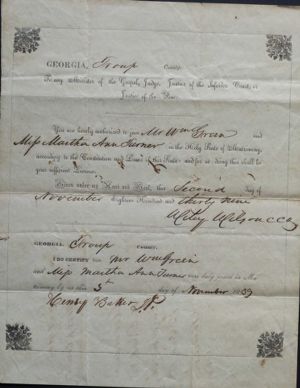 GEORGIA, Troup County.
To any Minister of the Gospel, Judge, Justice of the Inferior Court, or
Justice of the Peace.
You are hereby authorized to join Mr Wm Green and
Miss Martha Ann Turner in the Holy State of Matrimony,
according to the Constitution and Laws of this State and for so doing this shall be
your sufficient License.
Given under my Hand and Seal, this Second day of
November Eighteen Hundred and thirty nine
Wiley Wilson cco
GEORGIA. Troup COUNTY.
I DO CERTIFY that Mr Wm Green
and Miss Martha Ann Turner were duly joined in Matri-
mony by me this 5th day of November 1839
Henry Baker JP.